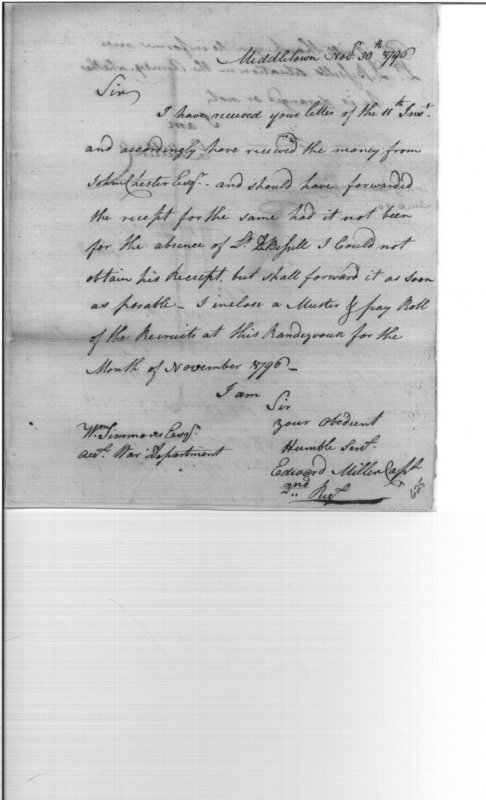 Middletown Nov.r 30th 1796
Sir
I have received your letter of the 11th Inst.
and accordingly have received the money from
John Chester Esqr. and should have forwarded
the receipt for the same had it not been
for the absence of Lt. I Could not
obtain his Receipt, but shall forward it as soon
as posable – I inclose a Muster & pay Roll
of the Recruits at this Randezvous for the
Month of November 1796 –
I am
Sir
your Obedient
Humble Servt.
Edward Miller Capt
2nd Regt
Wm Simmons Esqr.
acct. War Department
625